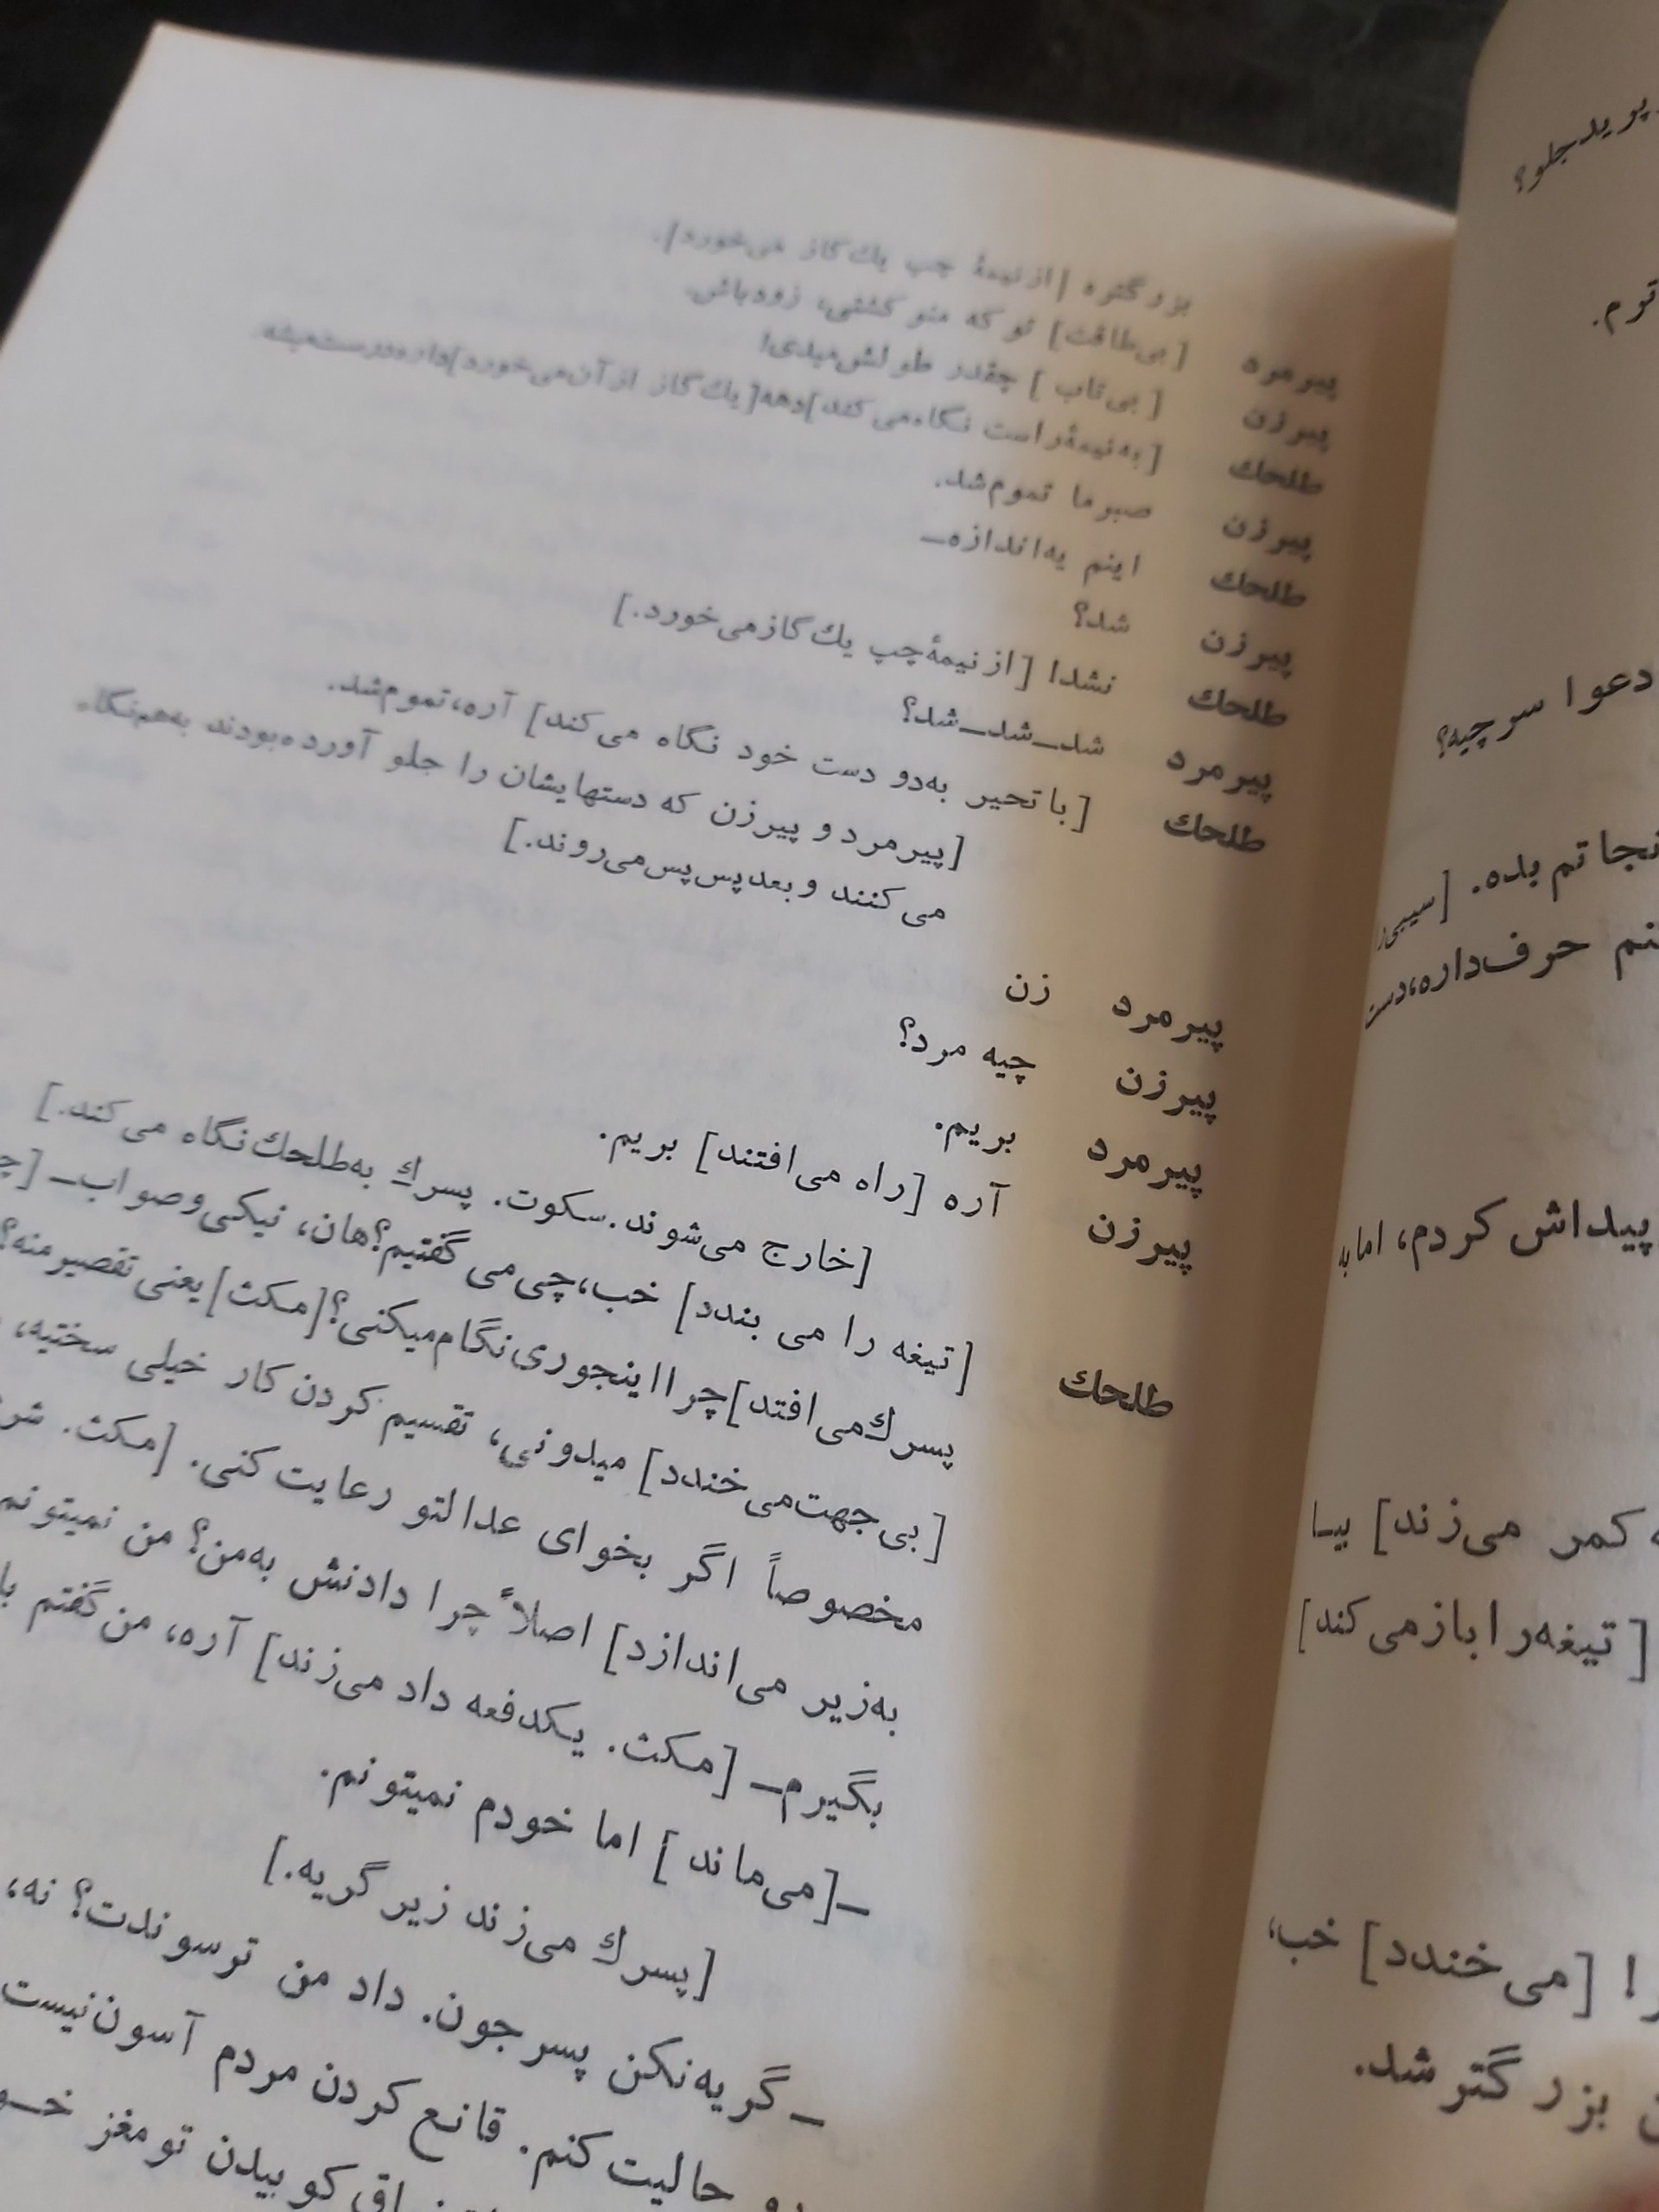 پریدجلو؟
ترم.
دعوا سرچیه؟
نجاتم بده. [سیبی‌را
نم حرف‌داره،دست
پیداش کردم، اما به
ه کمر می‌زند] بیـا
[تیغه‌را بازمی‌کند]
ر! [می‌خندد] خب،
بزرگتر شد.
بزرگتره [از نیمهٔ چپ یك گاز می‌خورد].
پیرمرد [بی‌طاقت] تو که منو کشتی، زودباش.
پیرزن [بی‌تاب] چقدر طولش‌میدی!
طلحك [به‌نیمهٔ‌راست نگاه‌می‌کند]دهه[یك گاز از آن‌می‌خورد]داره‌درست‌میشه
پیرزن صبرما تموم‌شد.
طلحك اینم یه‌اندازه–
پیرزن شد؟
طلحك نشد! [از نیمهٔ چپ یك گازمی‌خورد.]
پیرمرد شد–شد–شد؟
طلحك [با تحیر به‌دو دست خود نگاه می‌کند] آره،تموم‌شد.
[پیرمرد و پیرزن که دستهایشان را جلو آورده‌بودند به‌هم‌نگاه
می‌کنند و بعد پس‌پس‌می‌روند.]
پیرمرد زن
پیرزن چیه مرد؟
پیرمرد بریم.
پیرزن آره [راه می‌افتند] بریم.
[خارج می‌شوند.سکوت. پسرك به‌طلحك‌نگاه می‌کند.]
طلحك [تیغه را می بندد] خب،چی‌می گفتیم؟هان، نیکی‌وصواب– [چ
پسرك‌می‌افتد]چرا اینجوری‌نگام‌میکنی؟[مکث]یعنی تقصیرمنه؟
[بی‌جهت‌می‌خندد] میدونی، تقسیم کردن کار خیلی سختیه،
مخصوصاً اگر بخوای عدالتو رعایت کنی. [مکث. شر
به‌زیر می‌اندازد] اصلاً چرا دادنش به‌من؟ من نمیتونم
بگیرم– [مکث. یکدفعه داد می‌زند] آره، من گفتم با
–[می‌ماند] اما خودم نمیتونم.
[پسرك می‌زند زیر گریه.]
–گریه‌نکن پسرجون. داد من ترسوندت؟ نه،
حالیت کنم. قانع کردن مردم آسون‌نیست
کوبیدن تو مغز